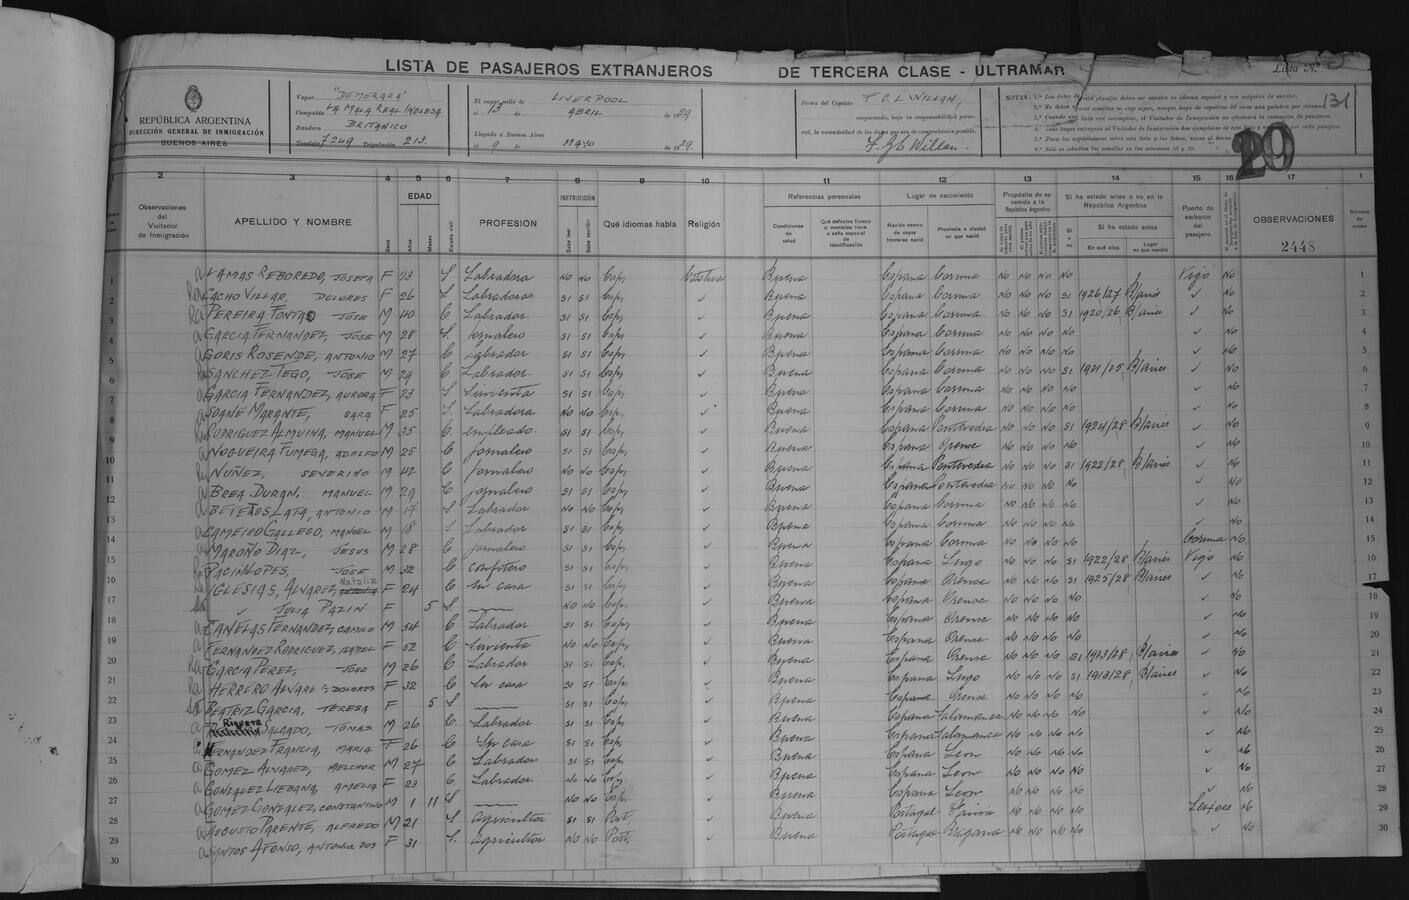 LISTA DE PASAJEROS EXTRANJEROS DE TERCERA CLASE - ULTRAMAR
Lista N.º
131
29
REPÚBLICA ARGENTINA
DIRECCIÓN GENERAL DE INMIGRACIÓN
BUENOS AIRES
Vapor "DEMERARA"
Compañía LA MALA REAL INGLESA
Bandera BRITANICO
Tonelaje 7249 Tripulación 213.
El vapor salió de LIVERPOOL
el 13 de ABRIL de 1929.
Llegado a Buenos Aires
el 9 de MAYO de 1929.
Firma del Capitán
asegurando, bajo su responsabilidad personal, la autenticidad de los datos que son de comprobación posible.
NOTAS:
2 3 4 5 6 7 8 9 10 11 12 13 14 15 16 17 1
Observaciones del Visitador de Inmigración
APELLIDO Y NOMBRE
Sexo
EDAD
Años
Meses
Estado civil
PROFESIÓN
INSTRUCCIÓN
Sabe leer
Sabe escribir
Qué idiomas habla
Religión
Referencias personales
Condiciones de salud
Qué defectos físicos o mentales tiene o seña especial de identificación
Lugar de nacimiento
Nación dentro de cuyas fronteras nació
Provincia o ciudad en que nació
Propósito de su venida a la República Argentina
Si ha estado antes o no en la República Argentina
Si ha estado antes
En qué años
Lugar en que residió
Puerto de embarco del pasajero
OBSERVACIONES
2448
Número de orden
1 LAMAS REBOREDO, JOSEFA F 23 S Labradora NO NO Esp, Católica Buena Espana Coruna NO NO NO NO Vigo No 1
2 CACHO VILLAR, DOLORES F 26 S Labradora SI SI Esp, ✓ Buena Espana Coruna NO NO NO SI 1926/27 B/aires ✓ No 2
3 JOSE M 40 C Labrador SI SI Esp, ✓ Buena Espana Coruna NO NO NO SI 1920/26 B/aires ✓ No 3
4 GARCIA FERNANDEZ, JOSE M 28 S Jornalero SI SI Esp, ✓ Buena Espana Coruna NO NO NO NO ✓ No 4
5 GORIS ROSENDE, ANTONIO M 27 C Labrador SI SI Esp, ✓ Buena Espana Coruna NO NO NO NO ✓ No 5
6 SANCHEZ TEGO, JOSE M 29 C Labrador SI SI Esp, ✓ Buena Espana Coruna NO NO NO SI 1921/25 B/aires ✓ No 6
7 GARCIA FERNANDEZ, AURORA F 23 S Sirvienta SI SI Esp, ✓ Buena Espana Coruna NO NO NO NO ✓ No 7
8 SOANE MARANTE, SARA F 25 S. Labradora NO NO Esp, ✓ Buena Espana Coruna NO NO NO NO ✓ No 8
9 RODRIGUEZ ALMUINA, MANUEL M 35 C. empleado SI SI Esp, ✓ Buena Espana Pontevedra NO NO NO SI 1924/28 B/aires ✓ No 9
10 NOGUEIRA FUMEGA, ADOLFO M 25 C Jornalero SI SI Esp, ✓ Buena Espana Orense NO NO NO NO ✓ No 10
11 NUÑEZ, SEVERINO M 42 C Jornalero NO NO Esp, ✓ Buena Espana Pontevedra NO NO NO SI 1922/28 B/aires ✓ No 11
12 BREA DURAN, MANUEL M 29 C Jornalero SI SI Esp, ✓ Buena Espana Pontevedra NO NO NO NO ✓ No 12
13 ANTONIO M 17 S Labrador NO NO Esp, ✓ Buena Espana Coruna NO NO NO NO ✓ No 13
14 CAMEIRO GALLEGO, MANUEL M 18 S Labrador SI SI Esp, ✓ Buena Espana Coruna NO NO NO NO ✓ No 14
15 MAROÑO DIAZ, JESUS M 28 C Jornalero SI SI Esp, ✓ Buena Espana Coruna NO NO NO NO Coruna No 15
16 JOSE M 32 C Confitero SI SI Esp, ✓ Buena Espana Lugo NO NO NO SI 1922/28 B/aires Vigo No 16
17 IGLESIAS, ALVAREZ Natalia F 24 C Su casa SI SI Esp, ✓ Buena Espana Orense NO NO NO SI 1925/28 B/aires ✓ No 17
✓ JULIA PAZIN F 5 S NO NO Esp, ✓ Buena Espana Orense NO NO NO NO ✓ No 18
18 CANELAS FERNANDEZ, CAMILO M 54 C Labrador SI SI Esp, ✓ Buena Espana Orense NO NO NO NO ✓ No 19
19 FERNANDEZ RODRIGUEZ, ISABEL F 52 C Sirvienta NO NO Esp, ✓ Buena Espana Orense NO NO NO NO ✓ No 20
20 GARCIA PEREZ, JOSE M 26 C Labrador SI SI Esp, ✓ Buena Espana Orense NO NO NO SI 1913/28 B/aires ✓ No 21
21 HERRERO DOLORES F 32 C Su casa SI SI Esp, ✓ Buena Espana Lugo NO NO NO SI 1918/28 B/aires ✓ No 22
22 BEATRIZ GARCIA, TERESA F 5 S SI SI Esp, ✓ Buena Espana Orense NO NO NO NO ✓ No 23
23 Riguera SALGADO, TOMAS M 26 C. Labrador SI SI Esp, ✓ Buena Espana Salamanca NO NO NO NO ✓ No 24
24 FERNANDEZ FRANCIA, MARIA F 26 C Su casa SI SI Esp, ✓ Buena Espana Salamanca NO NO NO NO ✓ No 25
25 GOMEZ ALVAREZ, MELCHOR M 27 C Labrador SI SI Esp, ✓ Buena Espana Leon NO NO NO NO ✓ No 26
26 GONZALEZ LIEBANA, AMELIA F 23 C. Labrador NO NO Esp, ✓ Buena Espana Leon NO NO NO NO ✓ No 27
27 GOMEZ GONZALEZ, CONSTANTINO M 1 11 S NO NO Esp, ✓ Buena Espana Leon NO NO NO NO ✓ No 28
28 AUGUSTO PARENTE, ALFREDO M 21 S Agricultor SI SI Port. ✓ Buena Portugal NO NO NO NO No 29
29 SANTOS AFONSO, ANTONIA DOS F 31 S. Agricultor NO NO Port. ✓ Buena Portugal NO NO NO NO ✓ No 30
30